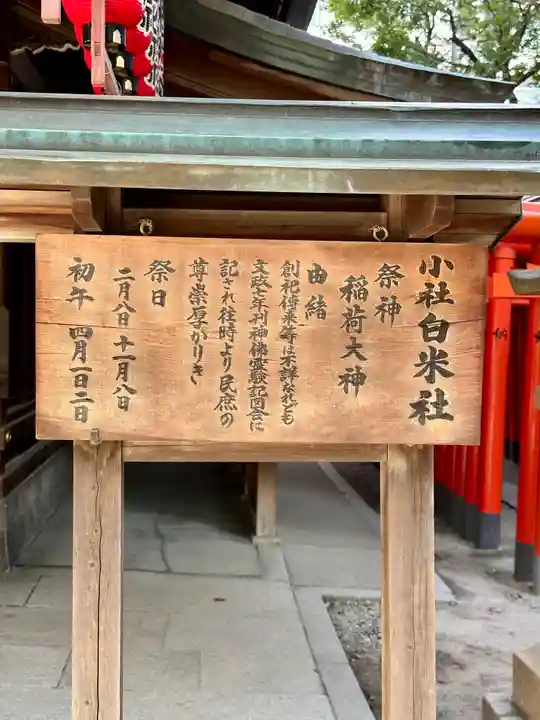 小社白米社
祭神
稲荷大神
由緒
創祀傳来等は不詳なれども
文政七年刊神佛霊験記図会に
記され往時より民庶の
尊崇厚かりき
祭日
二月八日 十一月八日
初午 四月一日二日